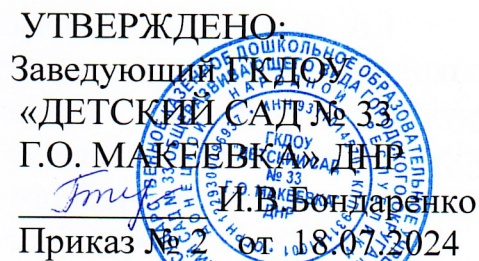 УТВЕРЖДЕНО:
Заведующий ГКДОУ
«ДЕТСКИЙ САД № 33
Г.О. МАКЕЕВКА» ДНР
И.В.Бондаренко
Приказ № 2 от 18.07.2024
ГКДОУ
ДЕТСКИЙ САД
№ 33
Г.О. МАКЕЕВКА
ДНР